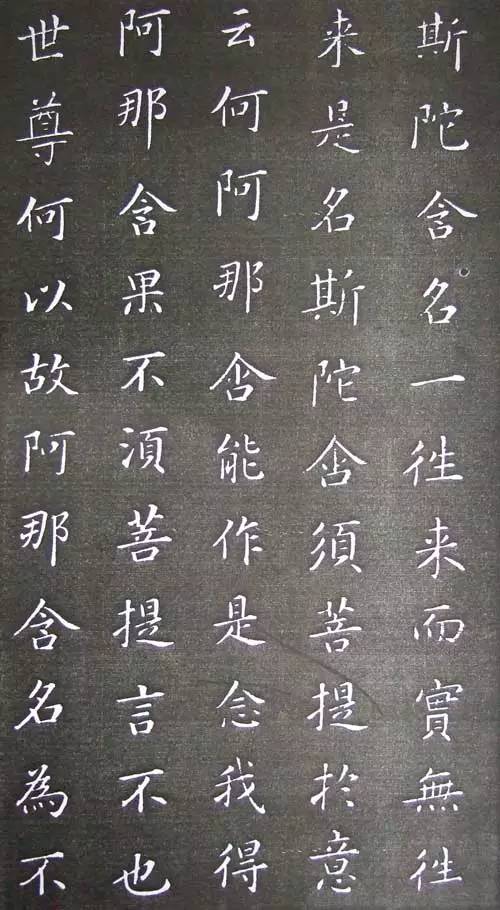 斯陀含名一往来而實無往
来是名斯陀含須菩提於意
云何阿那含能作是念我得
阿那含果不須菩提言不也
世尊何以故阿那含名為不